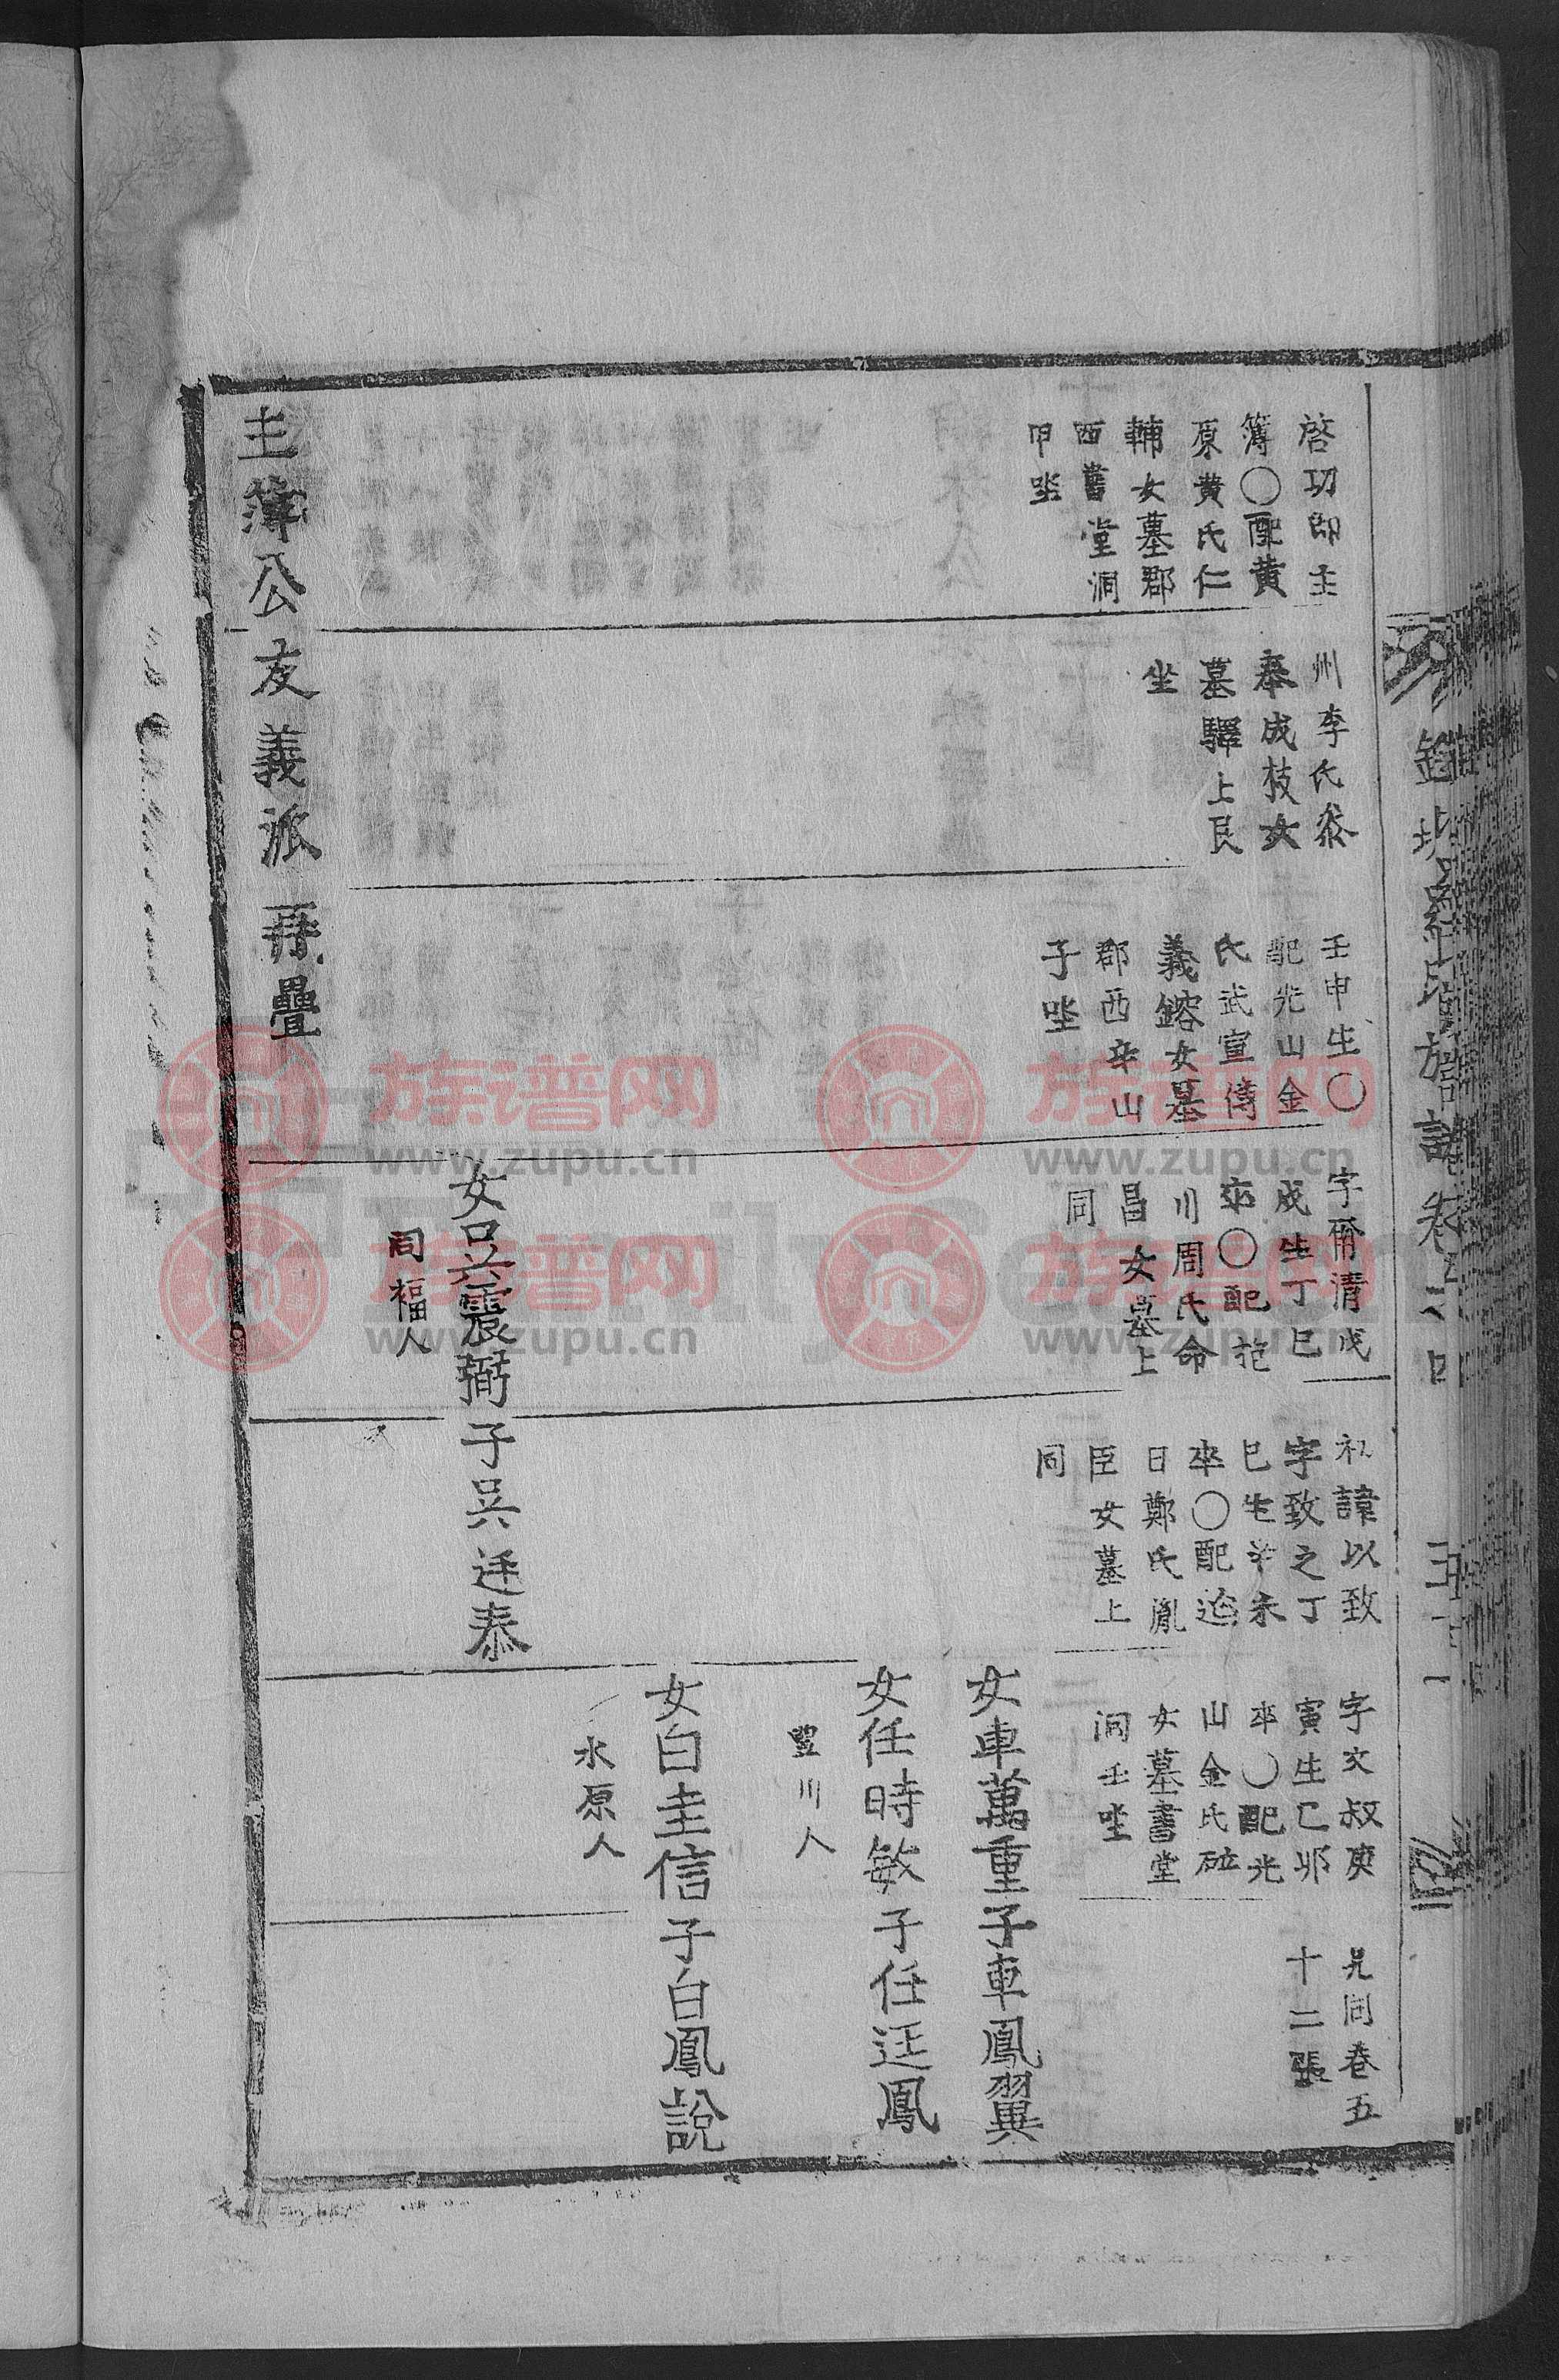 啓功郎主
簿〇配黄
原黄氏仁
輔女墓郡
西書堂洞
甲坐
州李氏
奉成枝女
墓驛上艮
坐
壬申生〇
配光山金
氏武宣傳
義鎔女墓
郡西辛山
子坐
字爾清戊
戌生丁巳
卒〇配
川周氏命
昌女墓上
同
初諱以致
字致之丁
巳生辛未
卒〇配迨
日鄭氏胤
臣女墓上
同
字文叔庚
寅生乙卯
卒〇配光
山金氏碻
女墓書堂
洞壬坐
見同卷五
十二張
女車萬重子車鳳翼
女任時敏子任廷鳳
豐川人
女白圭信子白鳳說
水原人
女吳震弼子吳廷泰
同福人
主簿公友義派 再疊
族谱网
www.zupu.cn
族谱网
www.zupu.cn
族谱网
www.zupu.cn
族谱网
www.zupu.cn